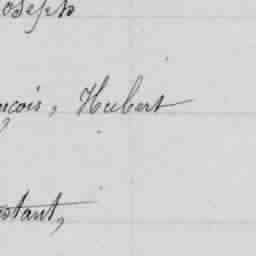 oseph
nçois, Hubert
nstant,